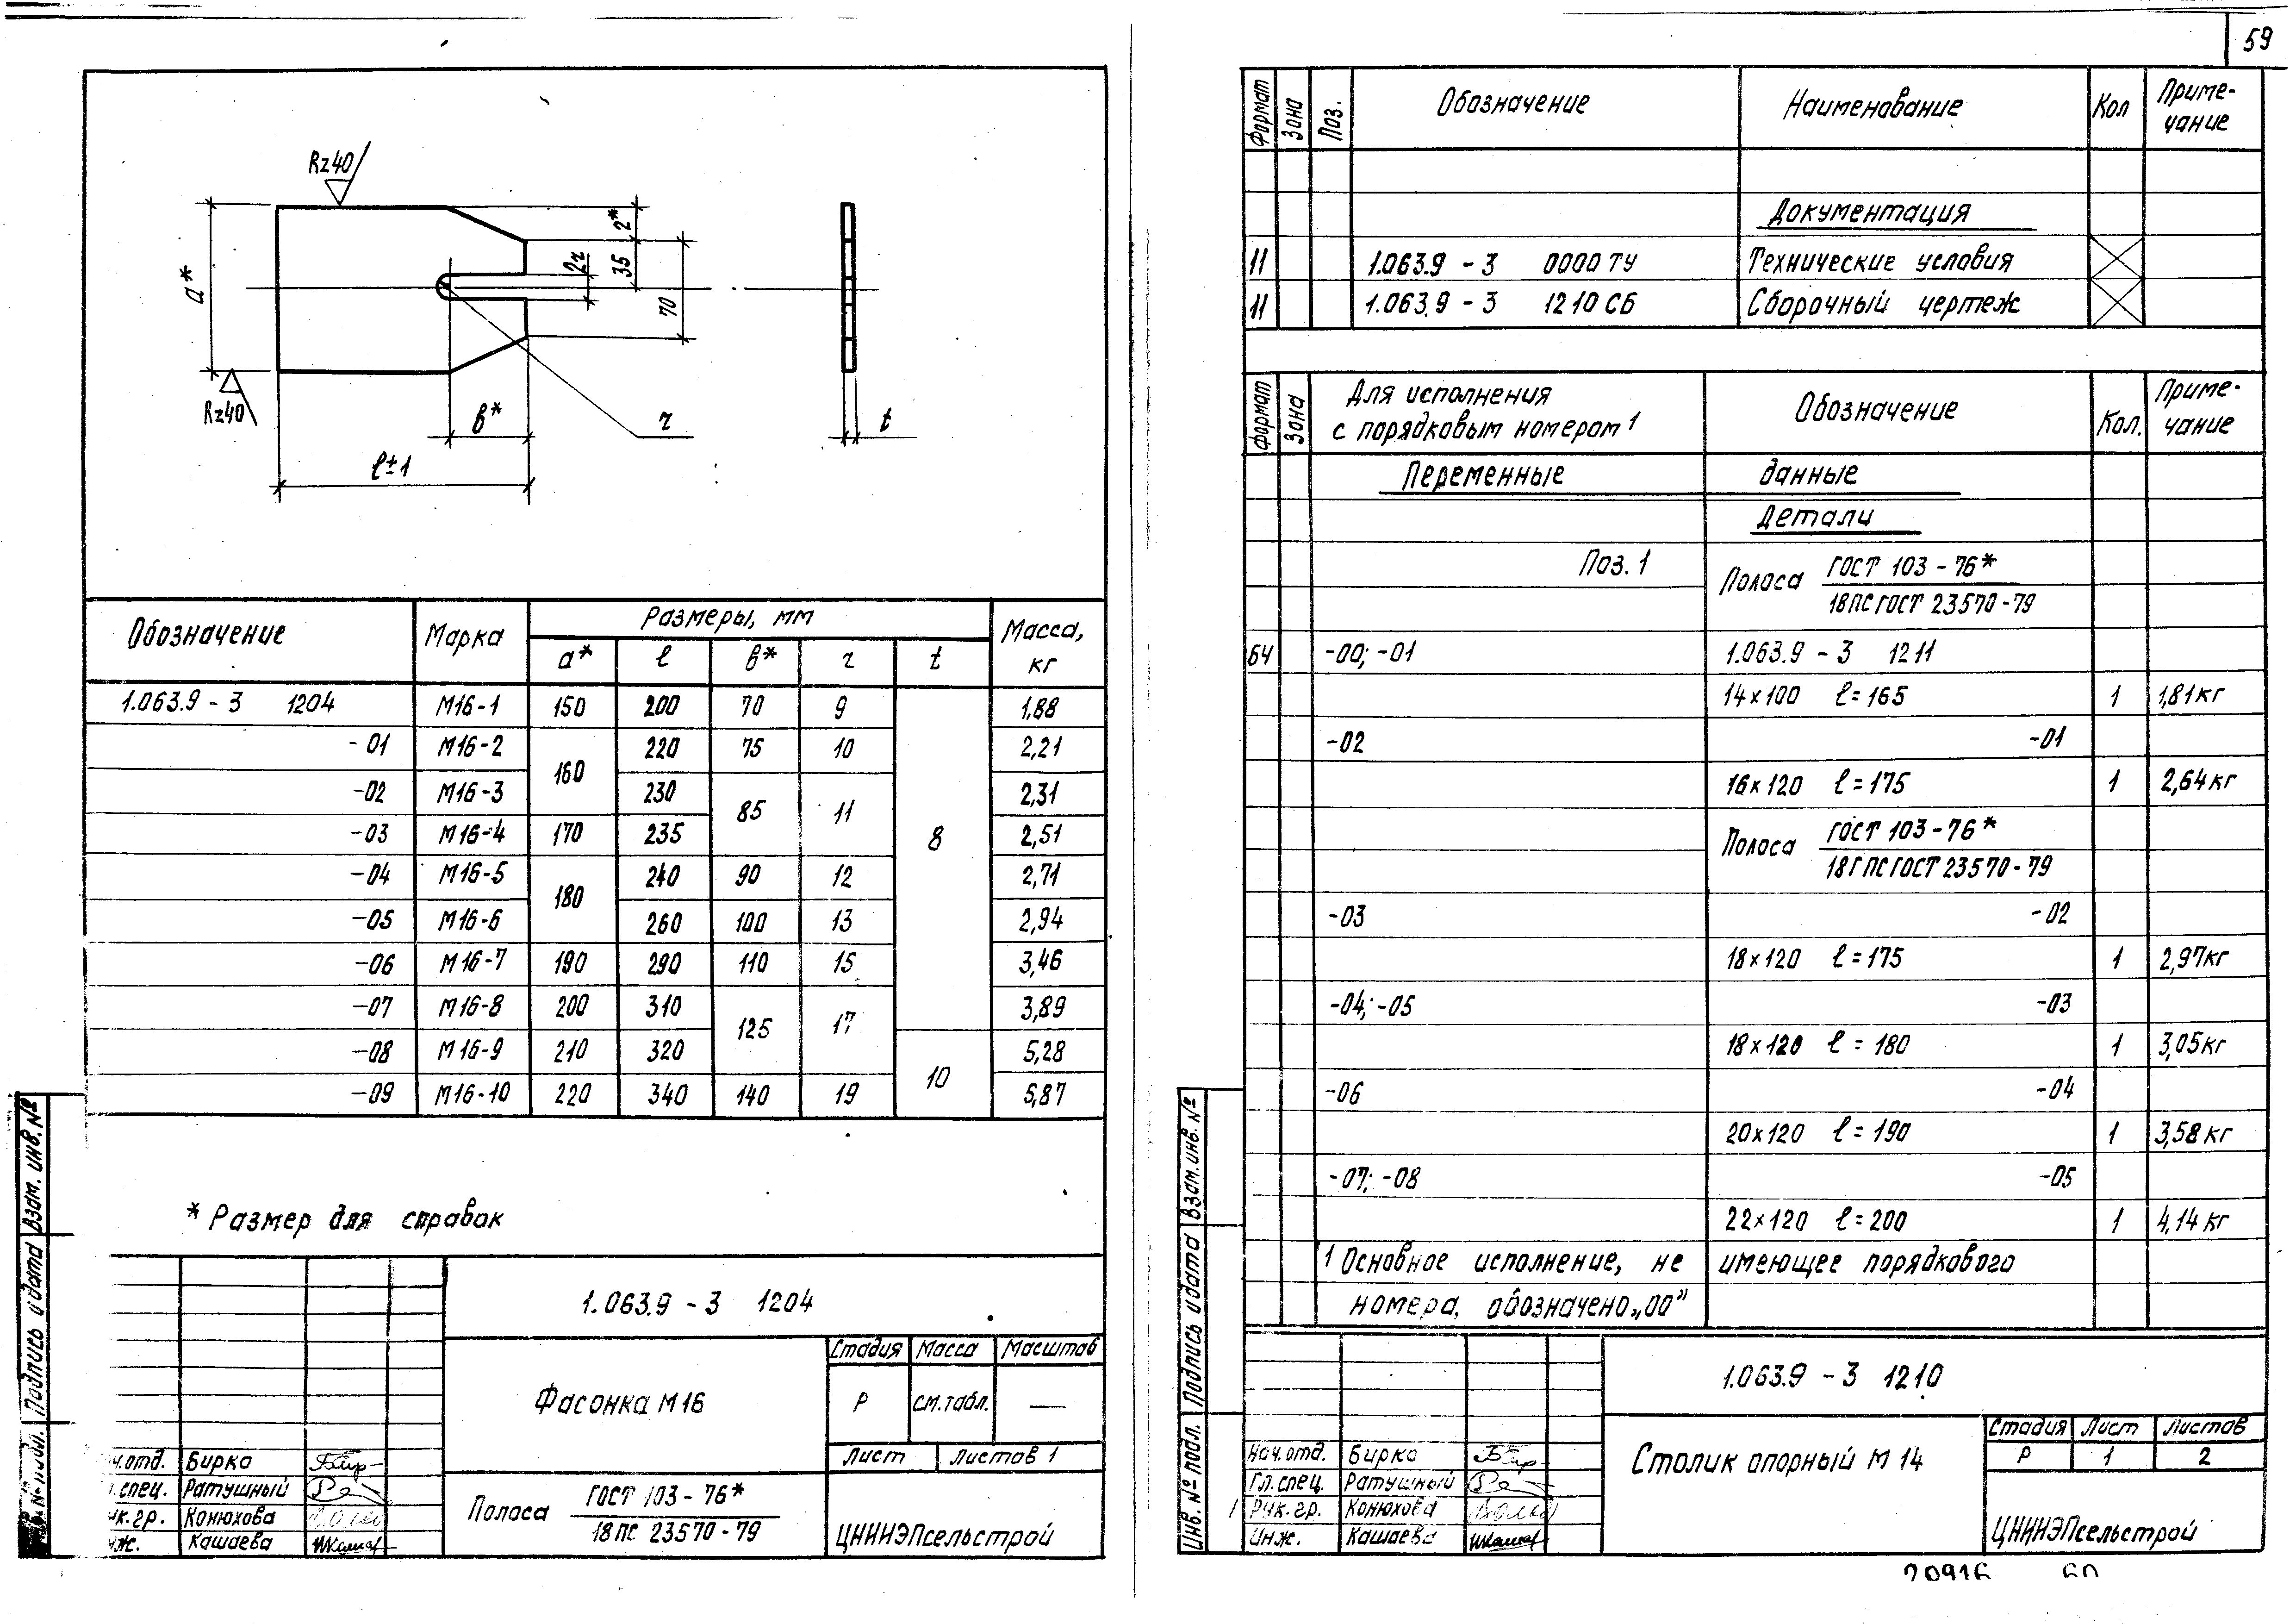 59
Rz40
a*
2*
35
2r
70
Rz40
в*
r
t
ℓ±1
Обозначение Марка Размеры, мм Масса, кг
a* ℓ в* r t
1.063.9 - 3 1204 М16-1 150 200 70 9 8 1,88
-01 М16-2 160 220 75 10 2,21
-02 М16-3 230 85 11 2,31
-03 М16-4 170 235 2,51
-04 М16-5 180 240 90 12 2,71
-05 М16-6 260 100 13 2,94
-06 М16-7 190 290 110 15 3,46
-07 М16-8 200 310 125 17 3,89
-08 М16-9 210 320 10 5,28
-09 М16-10 220 340 140 19 5,87
* Размер для справок
1.063.9 - 3 1204
Фасонка М16
Стадия Масса Масштаб
Р см.табл. —
Лист Листов 1
Полоса ГОСТ 103-76*
18ПС 23570-79
ЦНИИЭПсельстрой
ч.отд. Бирко
.спец. Ратушный
ук.гр. Конюхова
нж. Кашаева
Взам. инв. №
Подпись и дата
Формат Зона Поз. Обозначение Наименование Кол Примечание
Документация
11 1.063.9 - 3 0000 ТУ Технические условия
11 1.063.9 - 3 1210 СБ Сборочный чертеж
Формат Зона Для исполнения с порядковым номером 1 Обозначение Кол. Примечание
Переменные данные
Детали
Поз. 1 Полоса ГОСТ 103-76*
18ПС ГОСТ 23570-79
БЧ -00; -01 1.063.9 - 3 1211
14×100 ℓ=165 1 1,81кг
-02 -01
16×120 ℓ=175 1 2,64кг
Полоса ГОСТ 103-76*
18ГПС ГОСТ 23570-79
-03 -02
18×120 ℓ=175 1 2,97кг
-04; -05 -03
18×120 ℓ=180 1 3,05кг
-06 -04
20×120 ℓ=190 1 3,58кг
-07; -08 -05
22×120 ℓ=200 1 4,14кг
1 Основное исполнение, не имеющее порядкового
номера, обозначено „00”
1.063.9 - 3 1210
Столик опорный М 14
Стадия Лист Листов
Р 1 2
ЦНИИЭПсельстрой
Нач.отд. Бирко
Гл.спец. Ратушный
Рук.гр. Конюхова
Инж. Кашаева
Взам.инв. №
Подпись и дата
Инв. № подл.